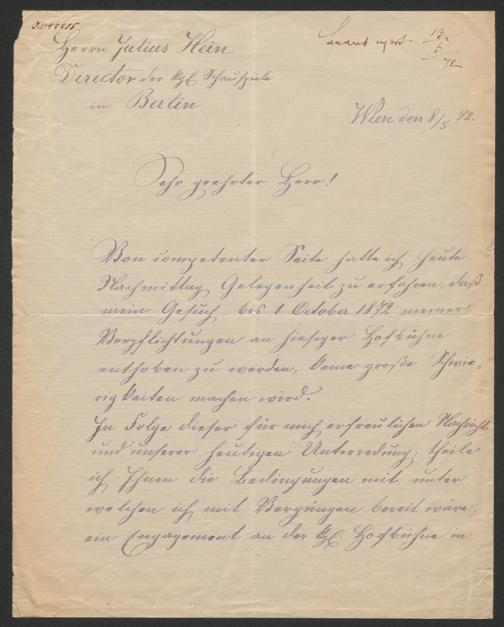 Herrn Julius Hein
Director der kgl. Schauspiele
in Berlin
Wien den 8/5 72.
Sehr geehrter Herr!
Von competenter Seite hatte ich heute
Nachmittag Gelegenheit zu erfahren, daß
mein Gesuch, bis 1 October 1872 meiner
Verpflichtungen an hiesiger Hofbühne
enthoben zu werden, keine große Schwie-
rigkeiten machen wird.
In Folge dieser für mich erfreulichen Nachricht
und unserer heutigen Unterredung, theile
ich Ihnen die Bedingungen mit, unter
welchen ich mit Vergnügen bereit wäre,
ein Engagement an der kgl. Hofbühne in